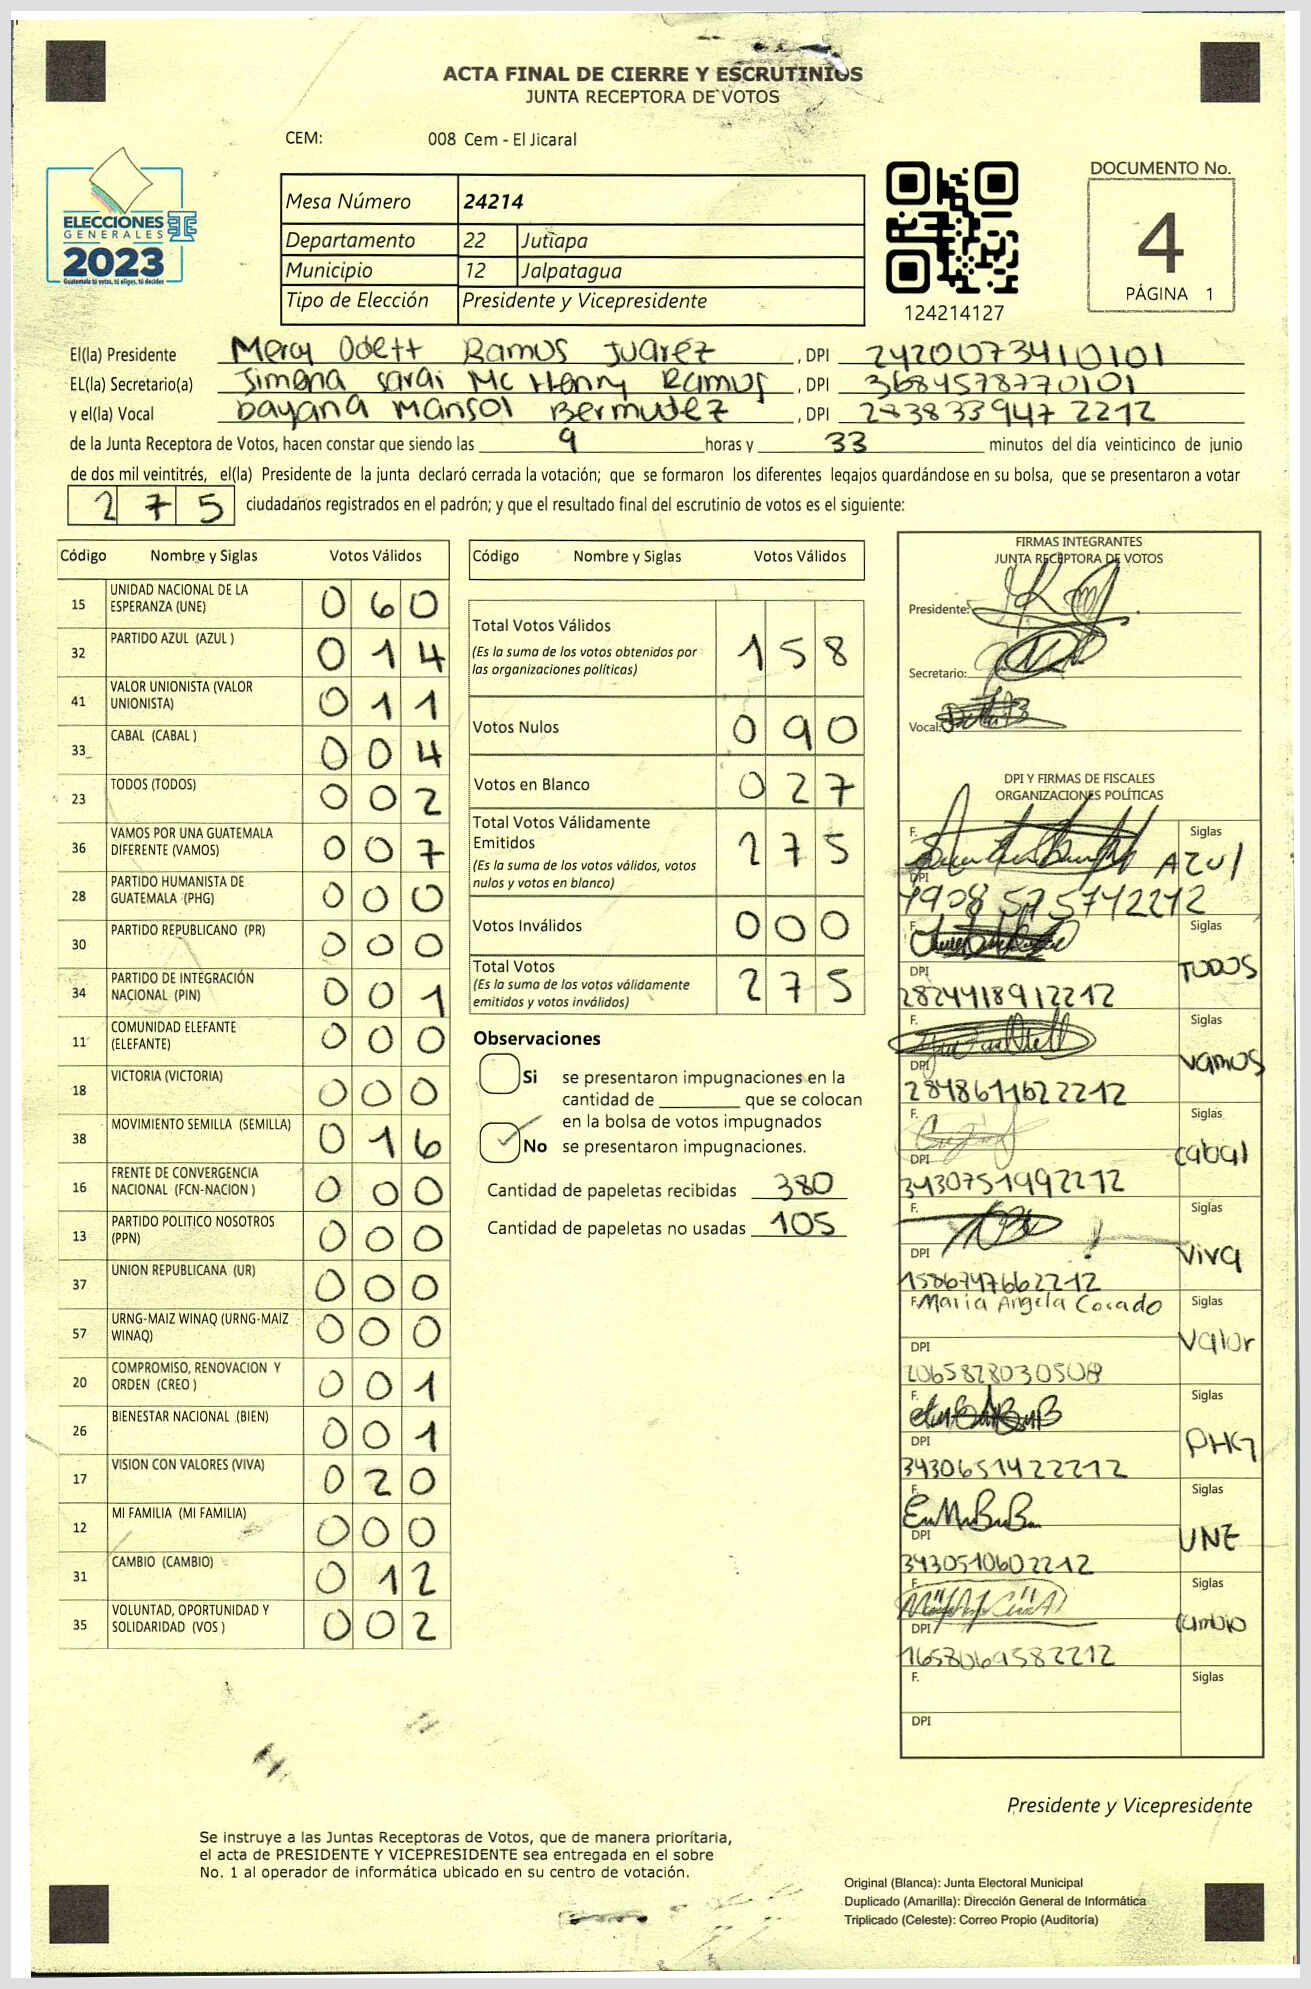 ACTA FINAL DE CIERRE Y ESCRUTINIOS
JUNTA RECEPTORA DE VOTOS
CEM: 008 Cem - El Jicaral
ELECCIONES
GENERALES
2023
Guatemala tú votas, tú eliges, tú decides
Mesa Número 24214
Departamento 22 Jutiapa
Municipio 12 Jalpatagua
Tipo de Elección Presidente y Vicepresidente
124214127
DOCUMENTO No.
4
PÁGINA 1
El(la) Presidente Mercy Odett Ramos Juarez , DPI 2420073410101
EL(la) Secretario(a) Jimena Sarai Mc Henry Ramos , DPI 3684578770101
y el(la) Vocal Dayana Marisol Bermudez , DPI 283833947 2212
de la Junta Receptora de Votos, hacen constar que siendo las 9 horas y 33 minutos del día veinticinco de junio
de dos mil veintitrés, el(la) Presidente de la junta declaró cerrada la votación; que se formaron los diferentes legajos guardándose en su bolsa, que se presentaron a votar
275 ciudadanos registrados en el padrón; y que el resultado final del escrutinio de votos es el siguiente:
Código Nombre y Siglas Votos Válidos
15 UNIDAD NACIONAL DE LA ESPERANZA (UNE) 060
32 PARTIDO AZUL (AZUL ) 014
41 VALOR UNIONISTA (VALOR UNIONISTA) 011
33 CABAL (CABAL ) 004
23 TODOS (TODOS) 002
36 VAMOS POR UNA GUATEMALA DIFERENTE (VAMOS) 007
28 PARTIDO HUMANISTA DE GUATEMALA (PHG) 000
30 PARTIDO REPUBLICANO (PR) 000
34 PARTIDO DE INTEGRACIÓN NACIONAL (PIN) 001
11 COMUNIDAD ELEFANTE (ELEFANTE) 000
18 VICTORIA (VICTORIA) 000
38 MOVIMIENTO SEMILLA (SEMILLA) 016
16 FRENTE DE CONVERGENCIA NACIONAL (FCN-NACION ) 000
13 PARTIDO POLITICO NOSOTROS (PPN) 000
37 UNION REPUBLICANA (UR) 000
57 URNG-MAIZ WINAQ (URNG-MAIZ WINAQ) 000
20 COMPROMISO, RENOVACION Y ORDEN (CREO ) 001
26 BIENESTAR NACIONAL (BIEN) 001
17 VISION CON VALORES (VIVA) 020
12 MI FAMILIA (MI FAMILIA) 000
31 CAMBIO (CAMBIO) 012
35 VOLUNTAD, OPORTUNIDAD Y SOLIDARIDAD (VOS ) 002
Código Nombre y Siglas Votos Válidos
Total Votos Válidos 158
(Es la suma de los votos obtenidos por
las organizaciones políticas)
Votos Nulos 090
Votos en Blanco 027
Total Votos Válidamente
Emitidos 275
(Es la suma de los votos válidos, votos
nulos y votos en blanco)
Votos Inválidos 000
Total Votos 275
(Es la suma de los votos válidamente
emitidos y votos inválidos)
Observaciones
Si se presentaron impugnaciones en la
cantidad de ________ que se colocan
en la bolsa de votos impugnados
No se presentaron impugnaciones.
Cantidad de papeletas recibidas 380
Cantidad de papeletas no usadas 105
FIRMAS INTEGRANTES
JUNTA RECEPTORA DE VOTOS
Presidente:
Secretario:
Vocal:
DPI Y FIRMAS DE FISCALES
ORGANIZACIONES POLÍTICAS
F. Siglas AZUL
DPI 1908 575742212
F. Siglas TODOS
DPI 2824418912212
F. Siglas vamos
DPI 2848611622212
F. Siglas cabal
DPI 3430751992212
F. Siglas Viva
DPI 1586747662212
F. Maria Angela Corado Siglas Valor
DPI 2065828030508
F. Siglas PHG
DPI 3430651422212
F. Siglas UNE
DPI 3430510602212
F. Siglas cambio
DPI 1658069582212
F. Siglas
DPI
Presidente y Vicepresidente
Se instruye a las Juntas Receptoras de Votos, que de manera prioritaria,
el acta de PRESIDENTE Y VICEPRESIDENTE sea entregada en el sobre
No. 1 al operador de informática ubicado en su centro de votación.
Original (Blanca): Junta Electoral Municipal
Duplicado (Amarilla): Dirección General de Informática
Triplicado (Celeste): Correo Propio (Auditoría)